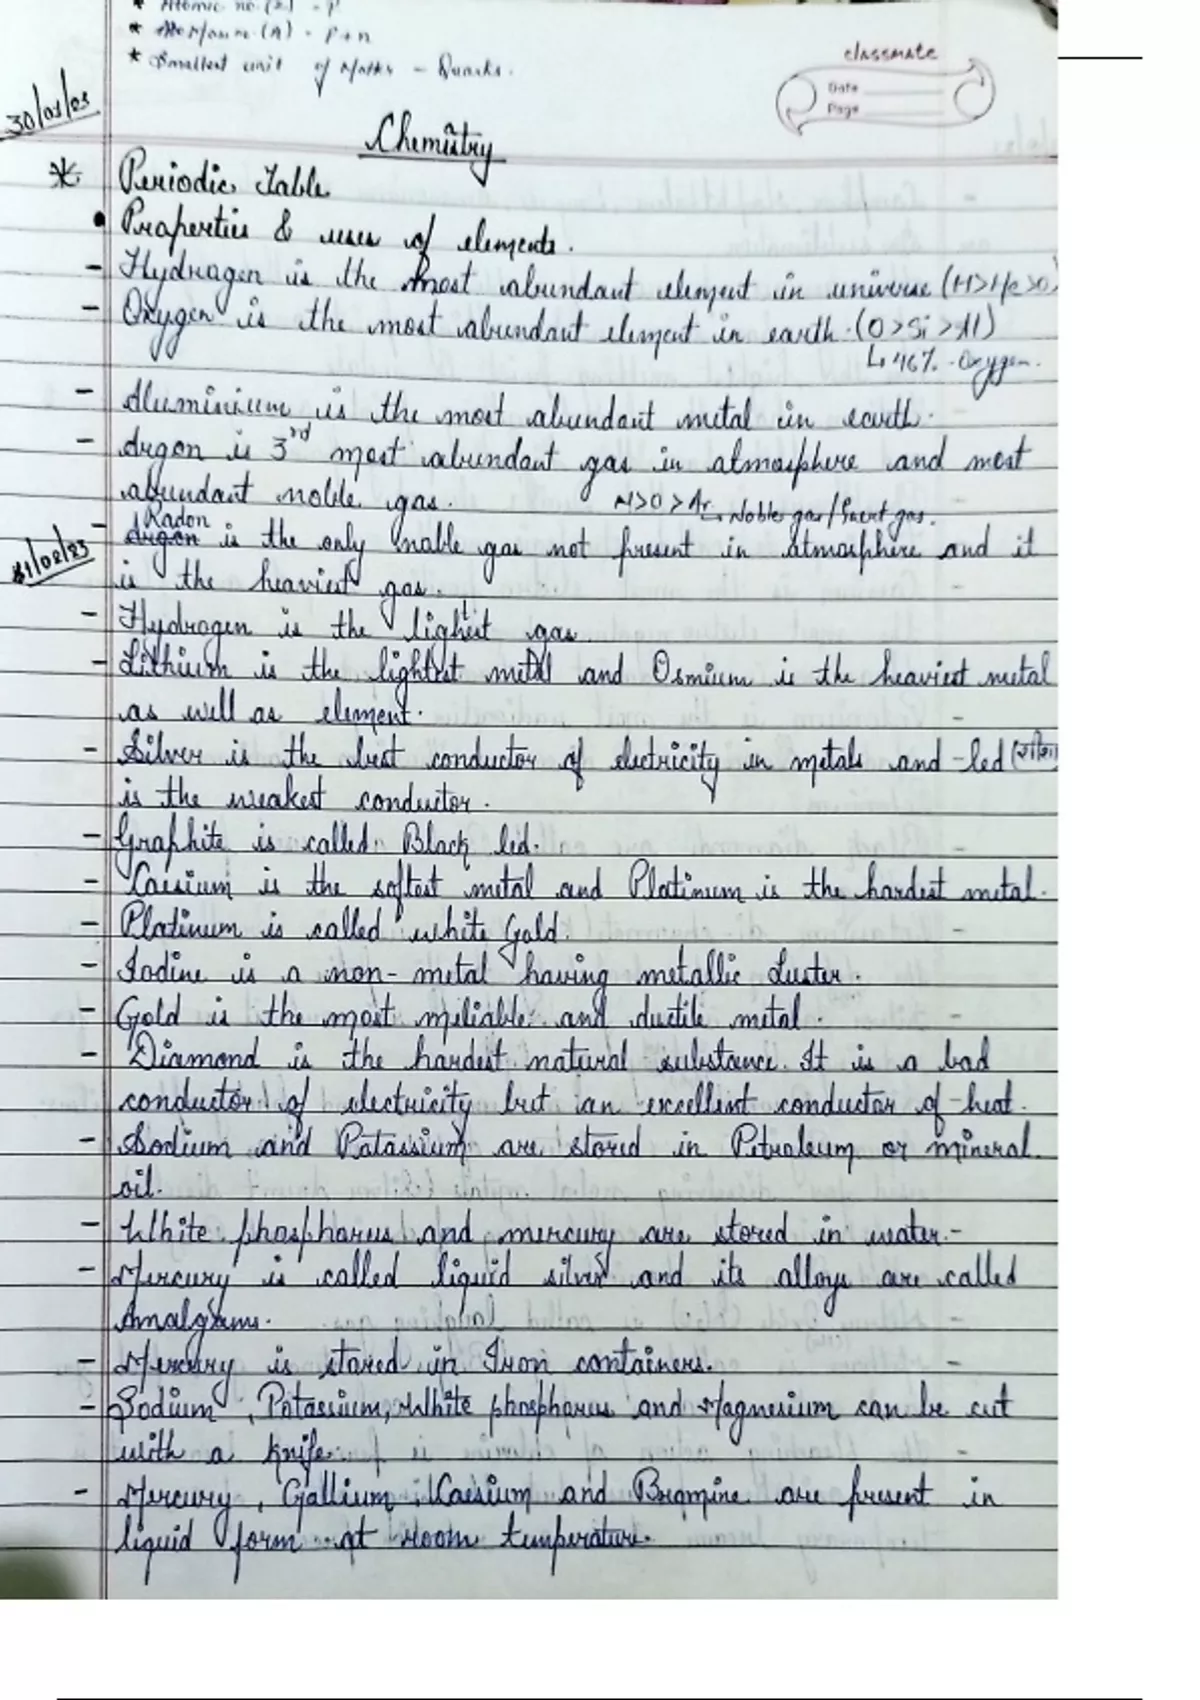 * Atomic no. (Z) - P
* (A) - P+n
* Smallest unit of - Quarks.
classmate
Date
Page
30/01/23
Chemistry
* Periodic Table
• Properties & uses of elements.
- Hydrogen is the most abundant element in universe (H>He>O)
- Oxygen is the most abundant element in earth. (O>Si>Al)
↳ 46% - Oxygen.
- Aluminium is the most abundant metal in earth.
- Argon is 3rd most abundant gas in atmosphere and most
abundant noble gas. N>O>Ar → Noble gas/Inert gas.
31/02/23
- Argon Radon is the only noble gas not present in atmosphere and it
is the heaviest gas.
- Hydrogen is the lightest gas
- Lithium is the lightest metal and Osmium is the heaviest metal
as well as element.
- Silver is the best conductor of electricity in metals and led (शीशा)
is the weakest conductor.
- Graphite is called Black led.
- Caesium is the softest metal and Platinum is the hardest metal.
- Platinum is called white Gold.
- Iodine is a non-metal having metallic Luster.
- Gold is the most meliable and ductile metal.
- Diamond is the hardest natural substance. It is a bad
conductor of electricity but an excellent conductor of heat.
- Sodium and Patassium are stored in Petroleum or mineral
oil.
- White phosphorus and mercury are stored in water.-
- Mercury is called liquid silver and its alloys are called
Amalgams.
- Mercury is stored in Iron containers.
- Sodium, Potassium, White phosphorus and Magnesium can be cut
with a knife.
- Mercury, Gallium, Caesium and Bromine are present in
liquid form at room temperature.